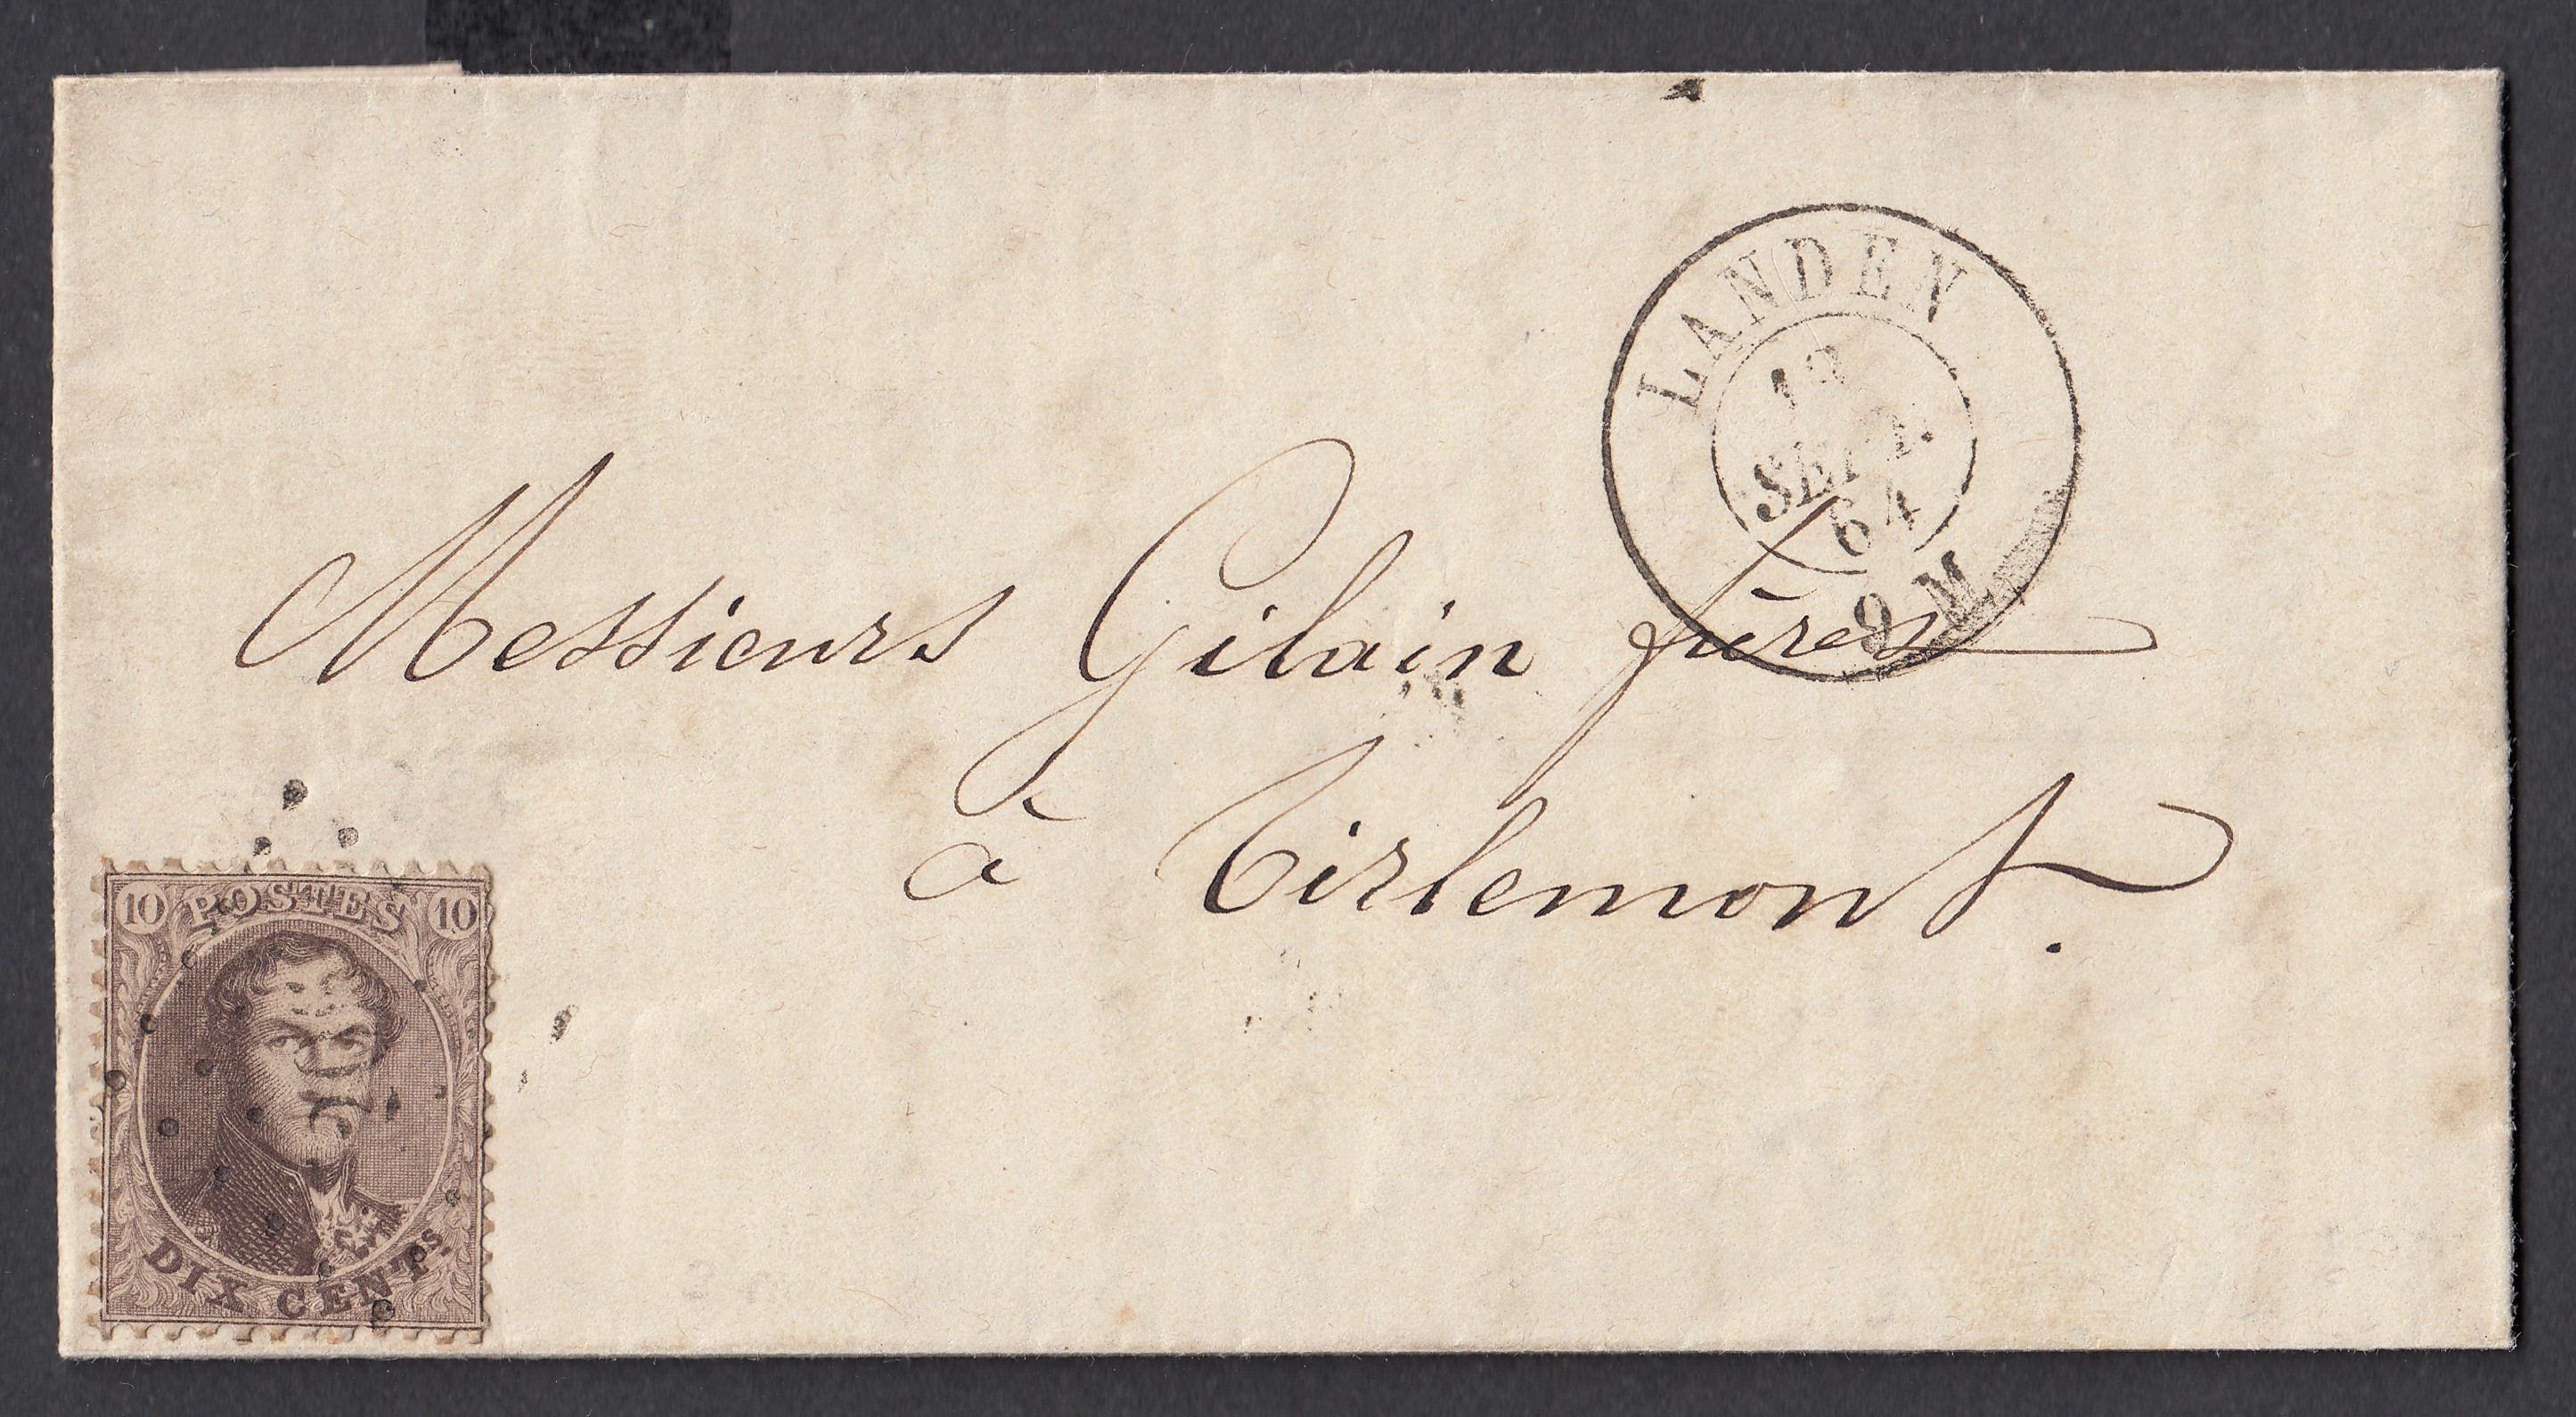 LANDEN
SEPT.
64
9 M
Messieurs Gilain frères
à Tirlemont.
10 POSTES 10
DIX CENTS.